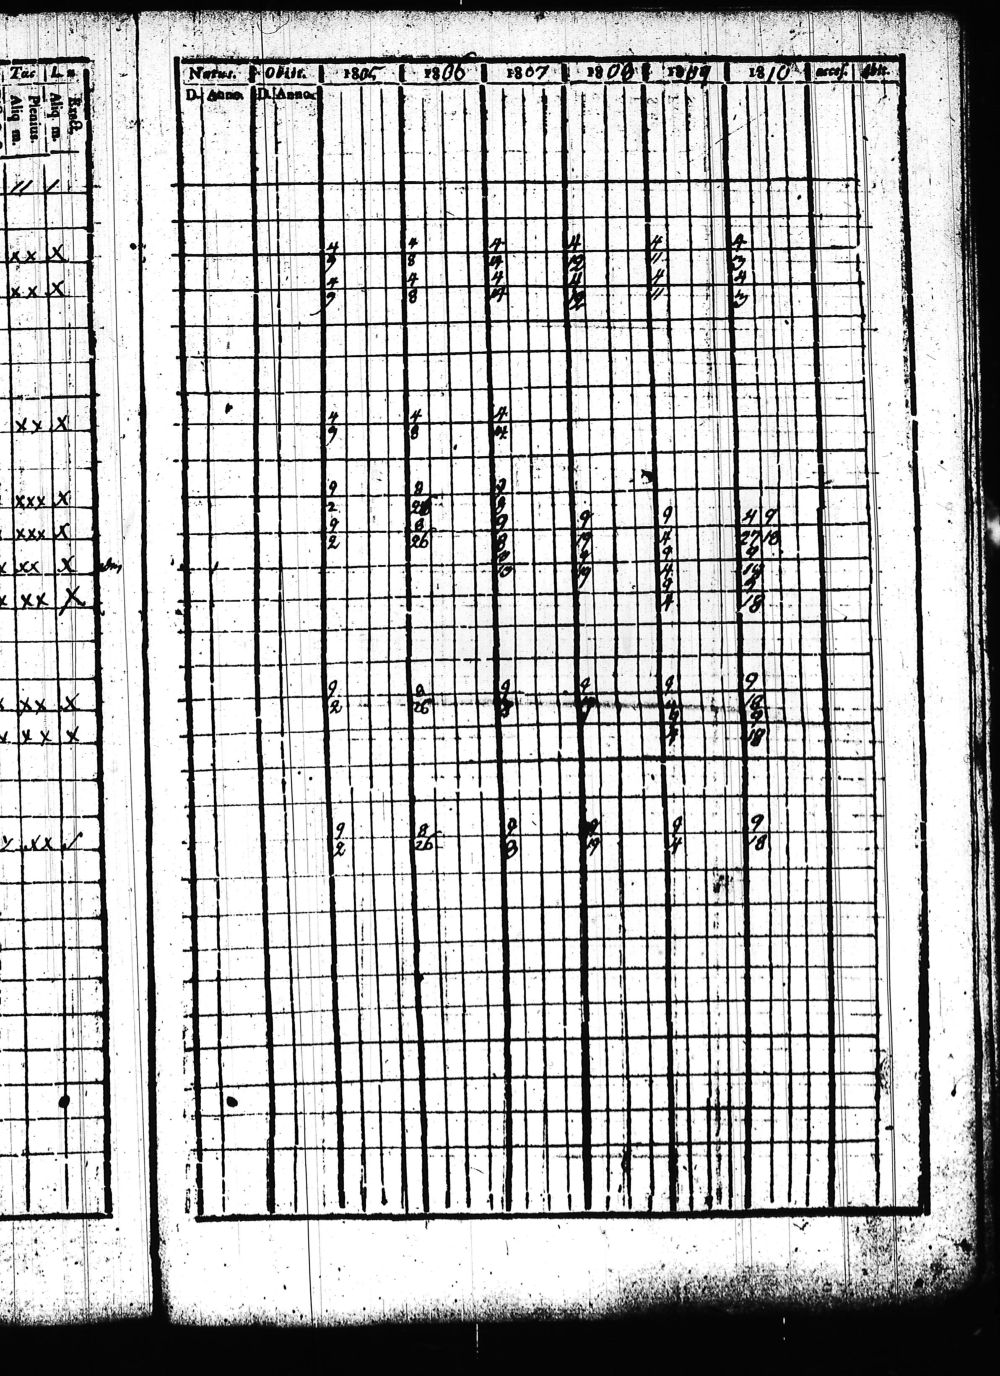 Tac L n
Aliq m.
Plenius.
Aliq m.
Natus. Obiit. 1805 1806 1807 1808 1809 1810 acces. Abit.
D. Anno. D. Anno.
// /
4 4 4 4 4 4
xx x 9 8 4 12 11 3
4 4 4 4 4 4
xx x 9 8 4 12 11 3
4 4 4
xx x 9 8 4
9 8 9
xxx x 2 26 3
9 8 9 9 9 4 9
xxx x 2 26 3 19 4 27 18
9 9 9
xx x 19 4 14
9 9
xx x 4 18
9 8 9 9 9 9
xx x 2 26 3 4 18
9 9
xx x 4 18
9 8 9 9 9 9
xx 2 26 3 19 4 18